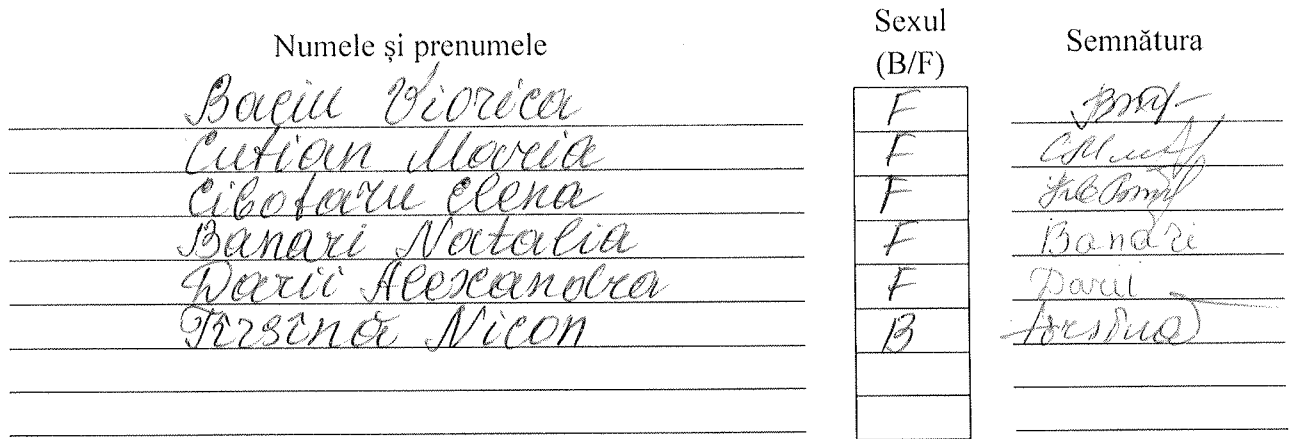 Numele și prenumele Sexul (B/F) Semnătura
Baciu Viorica F
Cutian Maria F
Cibotaru Elena F
Banari Natalia F Banari
Darii Alexandra F Darii
Tîrsînă Nicon B